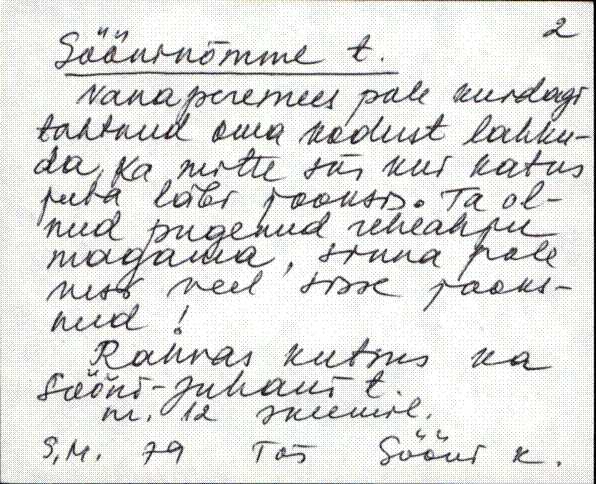 2
Söönurnõmme t.
Vanaperemees pole kuidagi
tahtnud oma kodust lahku-
da, ka mitte siis kui katus
juba läbi jooksis. Ta ol-
nud pugenud reheahju
magama, sinna pole
vesi veel sisse jooks-
nud!
Rahvas kutsus ka
Sööni-Juhani t.
nr. 12 skeemil.
S,M. 79 Tõs Sööni k.